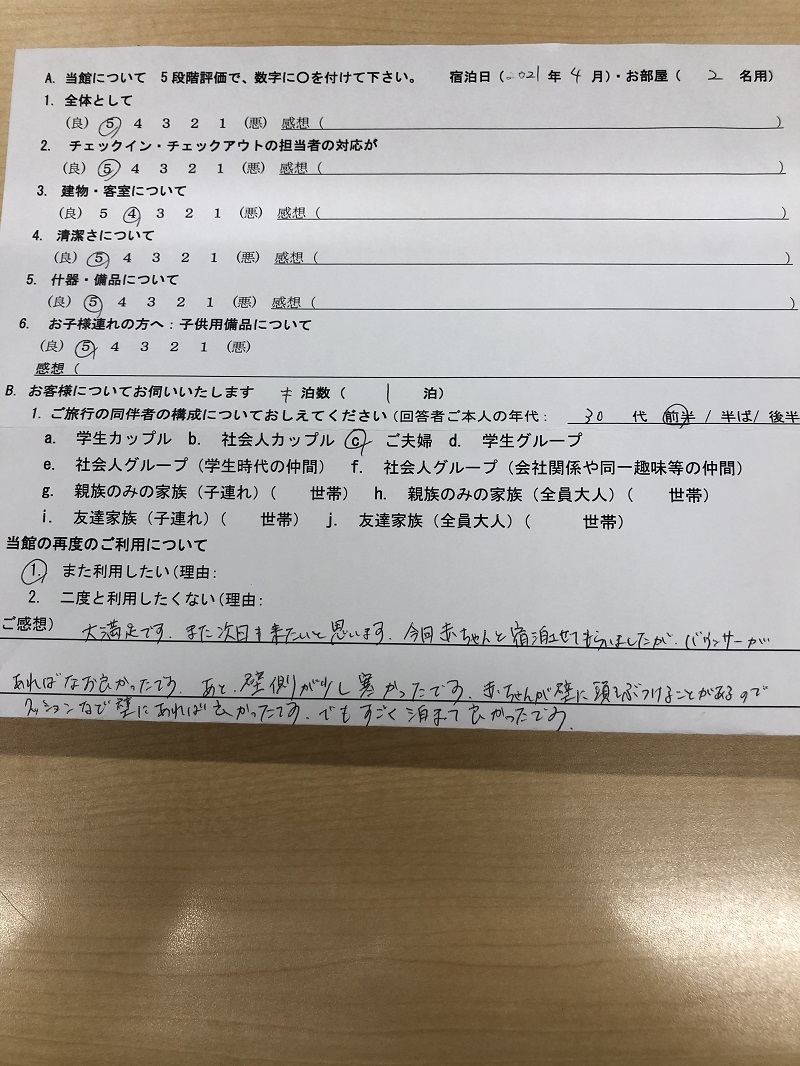 A. 当館について 5段階評価で、数字に〇を付けて下さい。 宿泊日(2021年4月)・お部屋( 2 名用)
1. 全体として
(良) 5 4 3 2 1 (悪) 感想( )
2. チェックイン・チェックアウトの担当者の対応が
(良) 5 4 3 2 1 (悪) 感想( )
3. 建物・客室について
(良) 5 4 3 2 1 (悪) 感想( )
4. 清潔さについて
(良) 5 4 3 2 1 (悪) 感想(
5. 什器・備品について
(良) 5 4 3 2 1 (悪) 感想( )
6. お子様連れの方へ:子供用備品について
(良) 5 4 3 2 1 (悪)
感想(
B. お客様についてお伺いいたします 泊数( 1 泊)
1. ご旅行の同伴者の構成についておしえてください(回答者ご本人の年代: 30 代 前半 / 半ば/ 後半
a. 学生カップル b. 社会人カップル c ご夫婦 d. 学生グループ
e. 社会人グループ(学生時代の仲間) f. 社会人グループ(会社関係や同一趣味等の仲間)
g. 親族のみの家族(子連れ)( 世帯) h. 親族のみの家族(全員大人)( 世帯)
i. 友達家族(子連れ)( 世帯) j. 友達家族(全員大人)( 世帯)
当館の再度のご利用について
1. また利用したい(理由:
2. 二度と利用したくない(理由:
ご感想) 大満足です。また次回も来たいと思います。今回赤ちゃんと宿泊させてもらいましたが、バウンサーが
あればなお良かったです。あと、壁側が少し寒かったです。赤ちゃんが壁に頭をぶつけることがあるので
クッションなど壁にあれば良かったです。でもすごく泊まて良かったです。